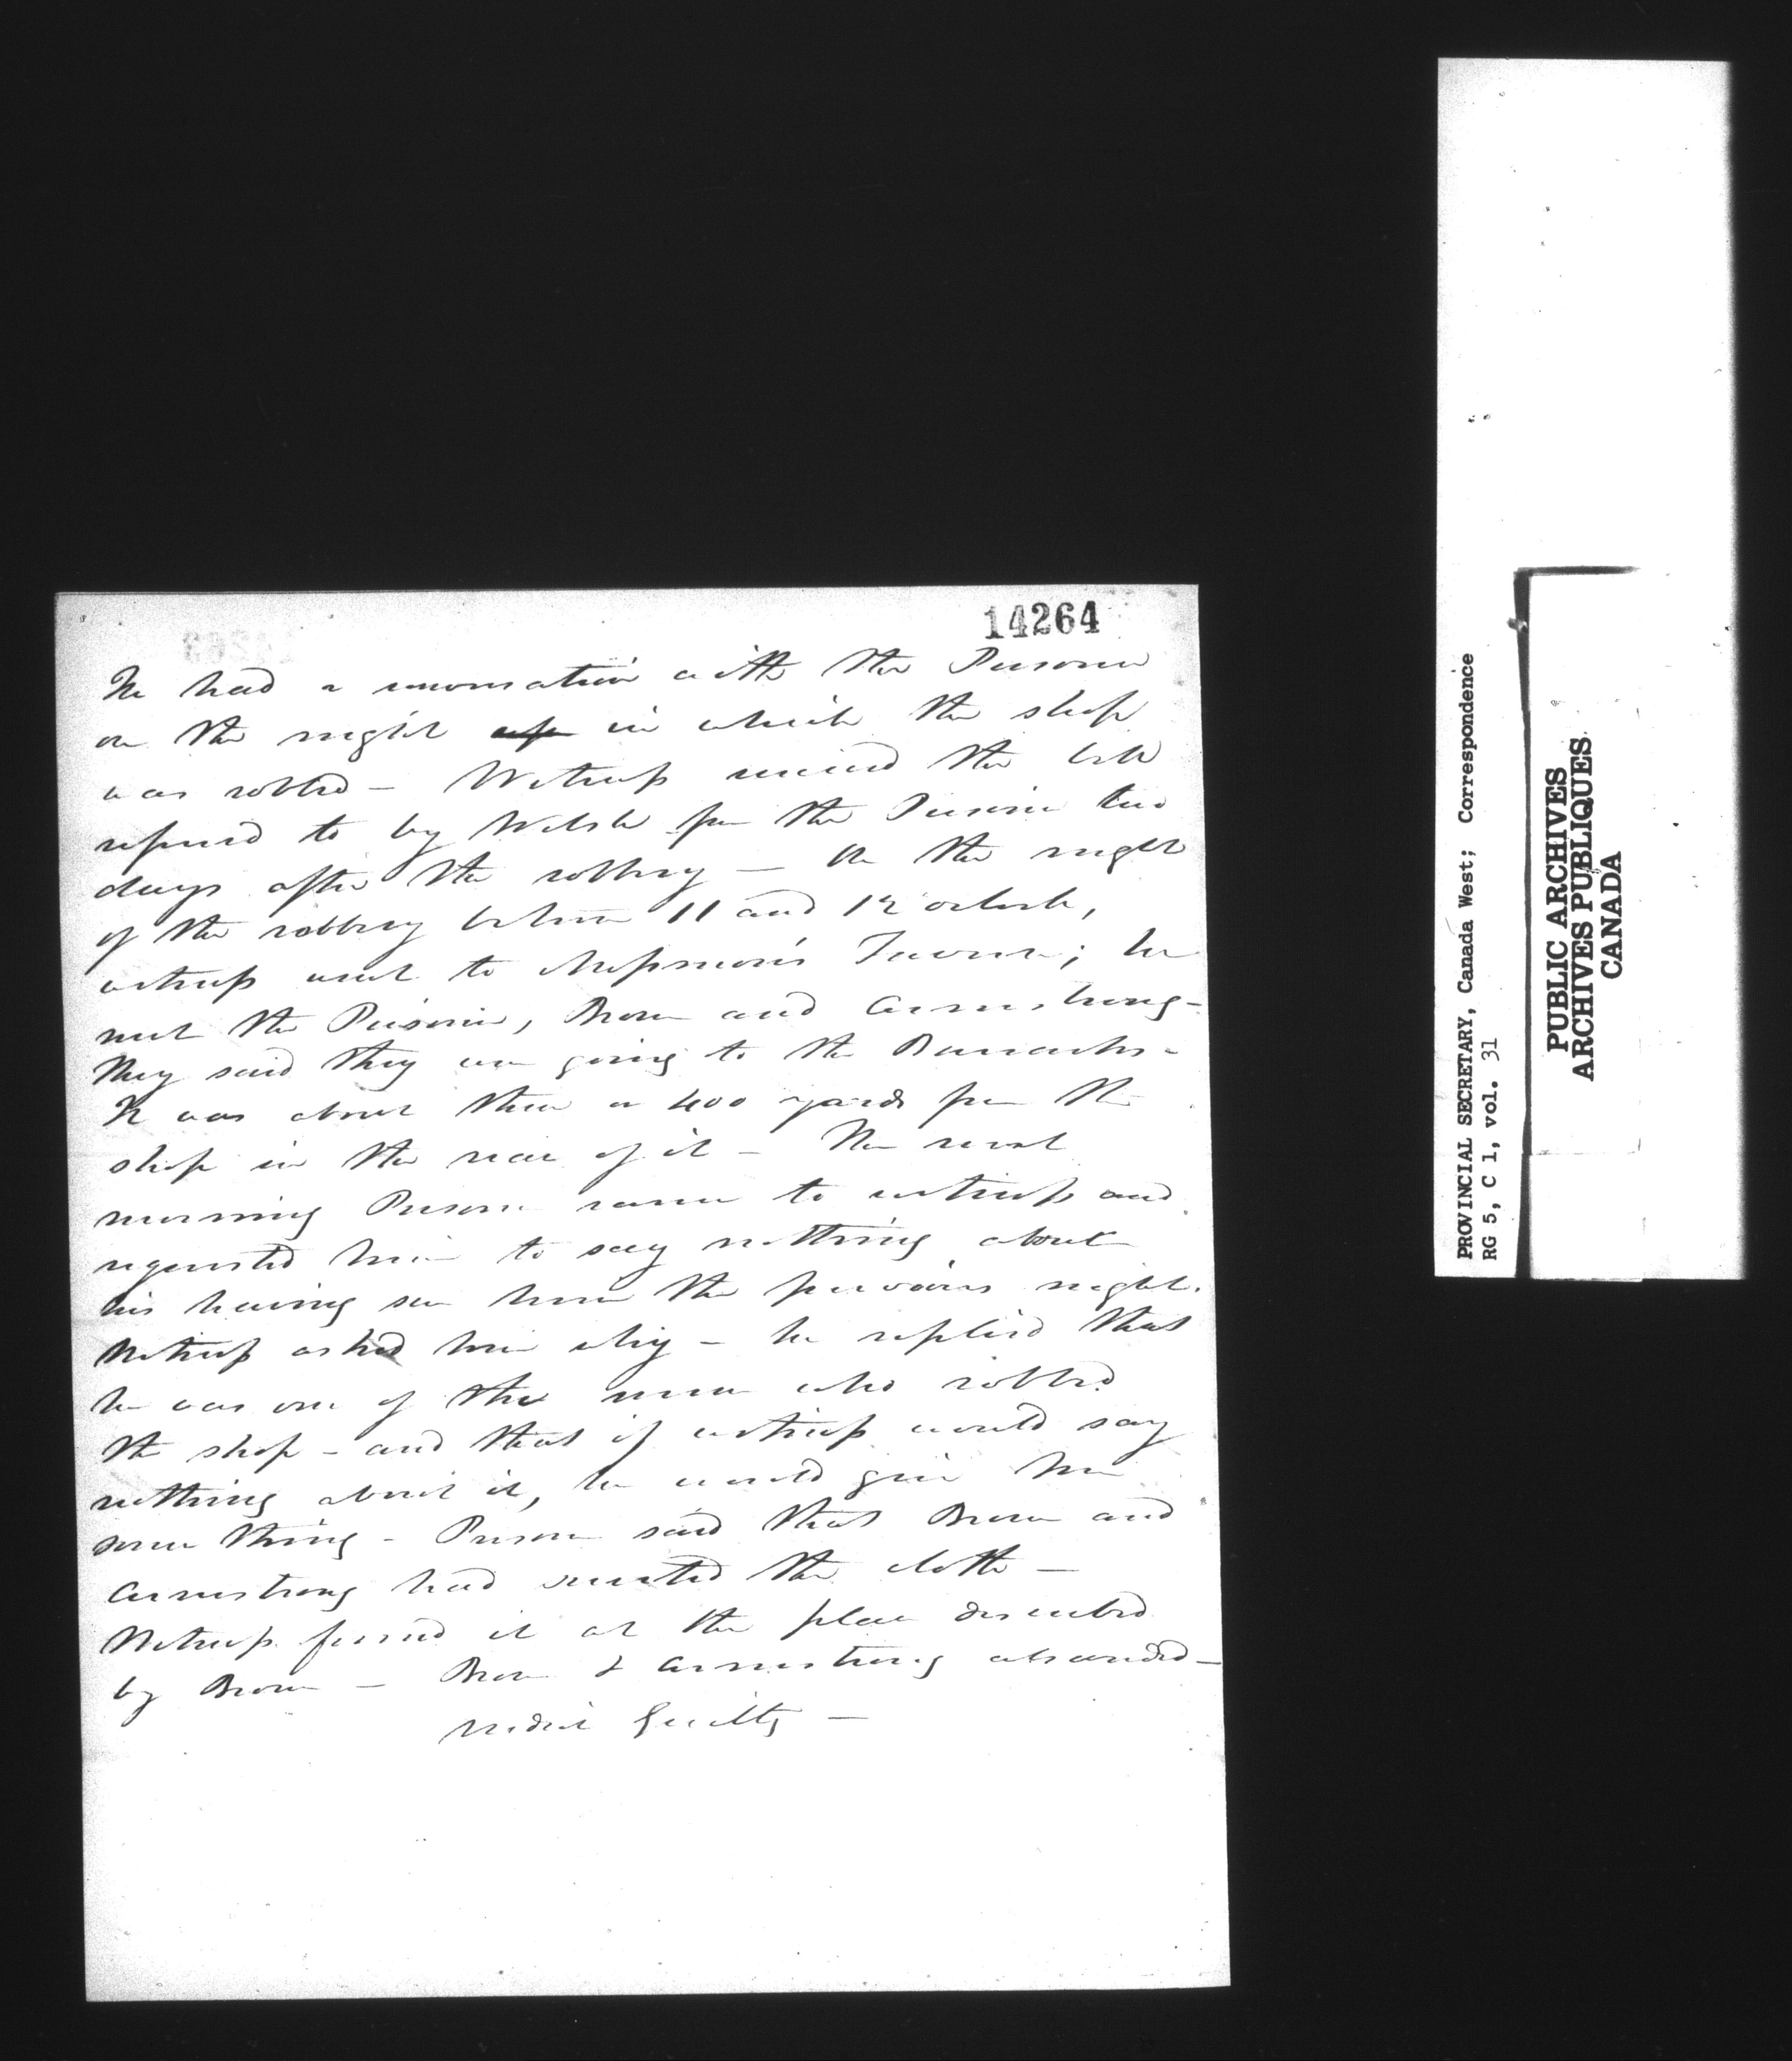 14264
He had a conversation with the Prisoner
on the night in which the shop
was robbed – Witness received the
referred to by Welsh from the Prisoner two
days after the robbery – On the night
of the robbery between 11 and 12 oclock,
witness went to Tavern; he
met the Prisoner, Brown and Armstrong –
they said they were going to the Barracks –
It was about three or 400 yards from the
shop in the rear of it – The next
morning Prisoner came to witness and
requested him to say nothing about
his having seen him the previous night.
Witness asked him why – he replied that
he was one of the men who robbed
the shop – and that if witness would say
nothing about it, he would give him
some thing – Prisoner said that Brown and
Armstrong had secreted the cloth –
Witness found it at the place described
by Brown – Brown & Armstrong absconded –
Verdict Guilty –
PROVINCIAL SECRETARY, Canada West; Correspondence
RG 5, C 1, vol. 31
PUBLIC ARCHIVES
ARCHIVES PUBLIQUES
CANADA